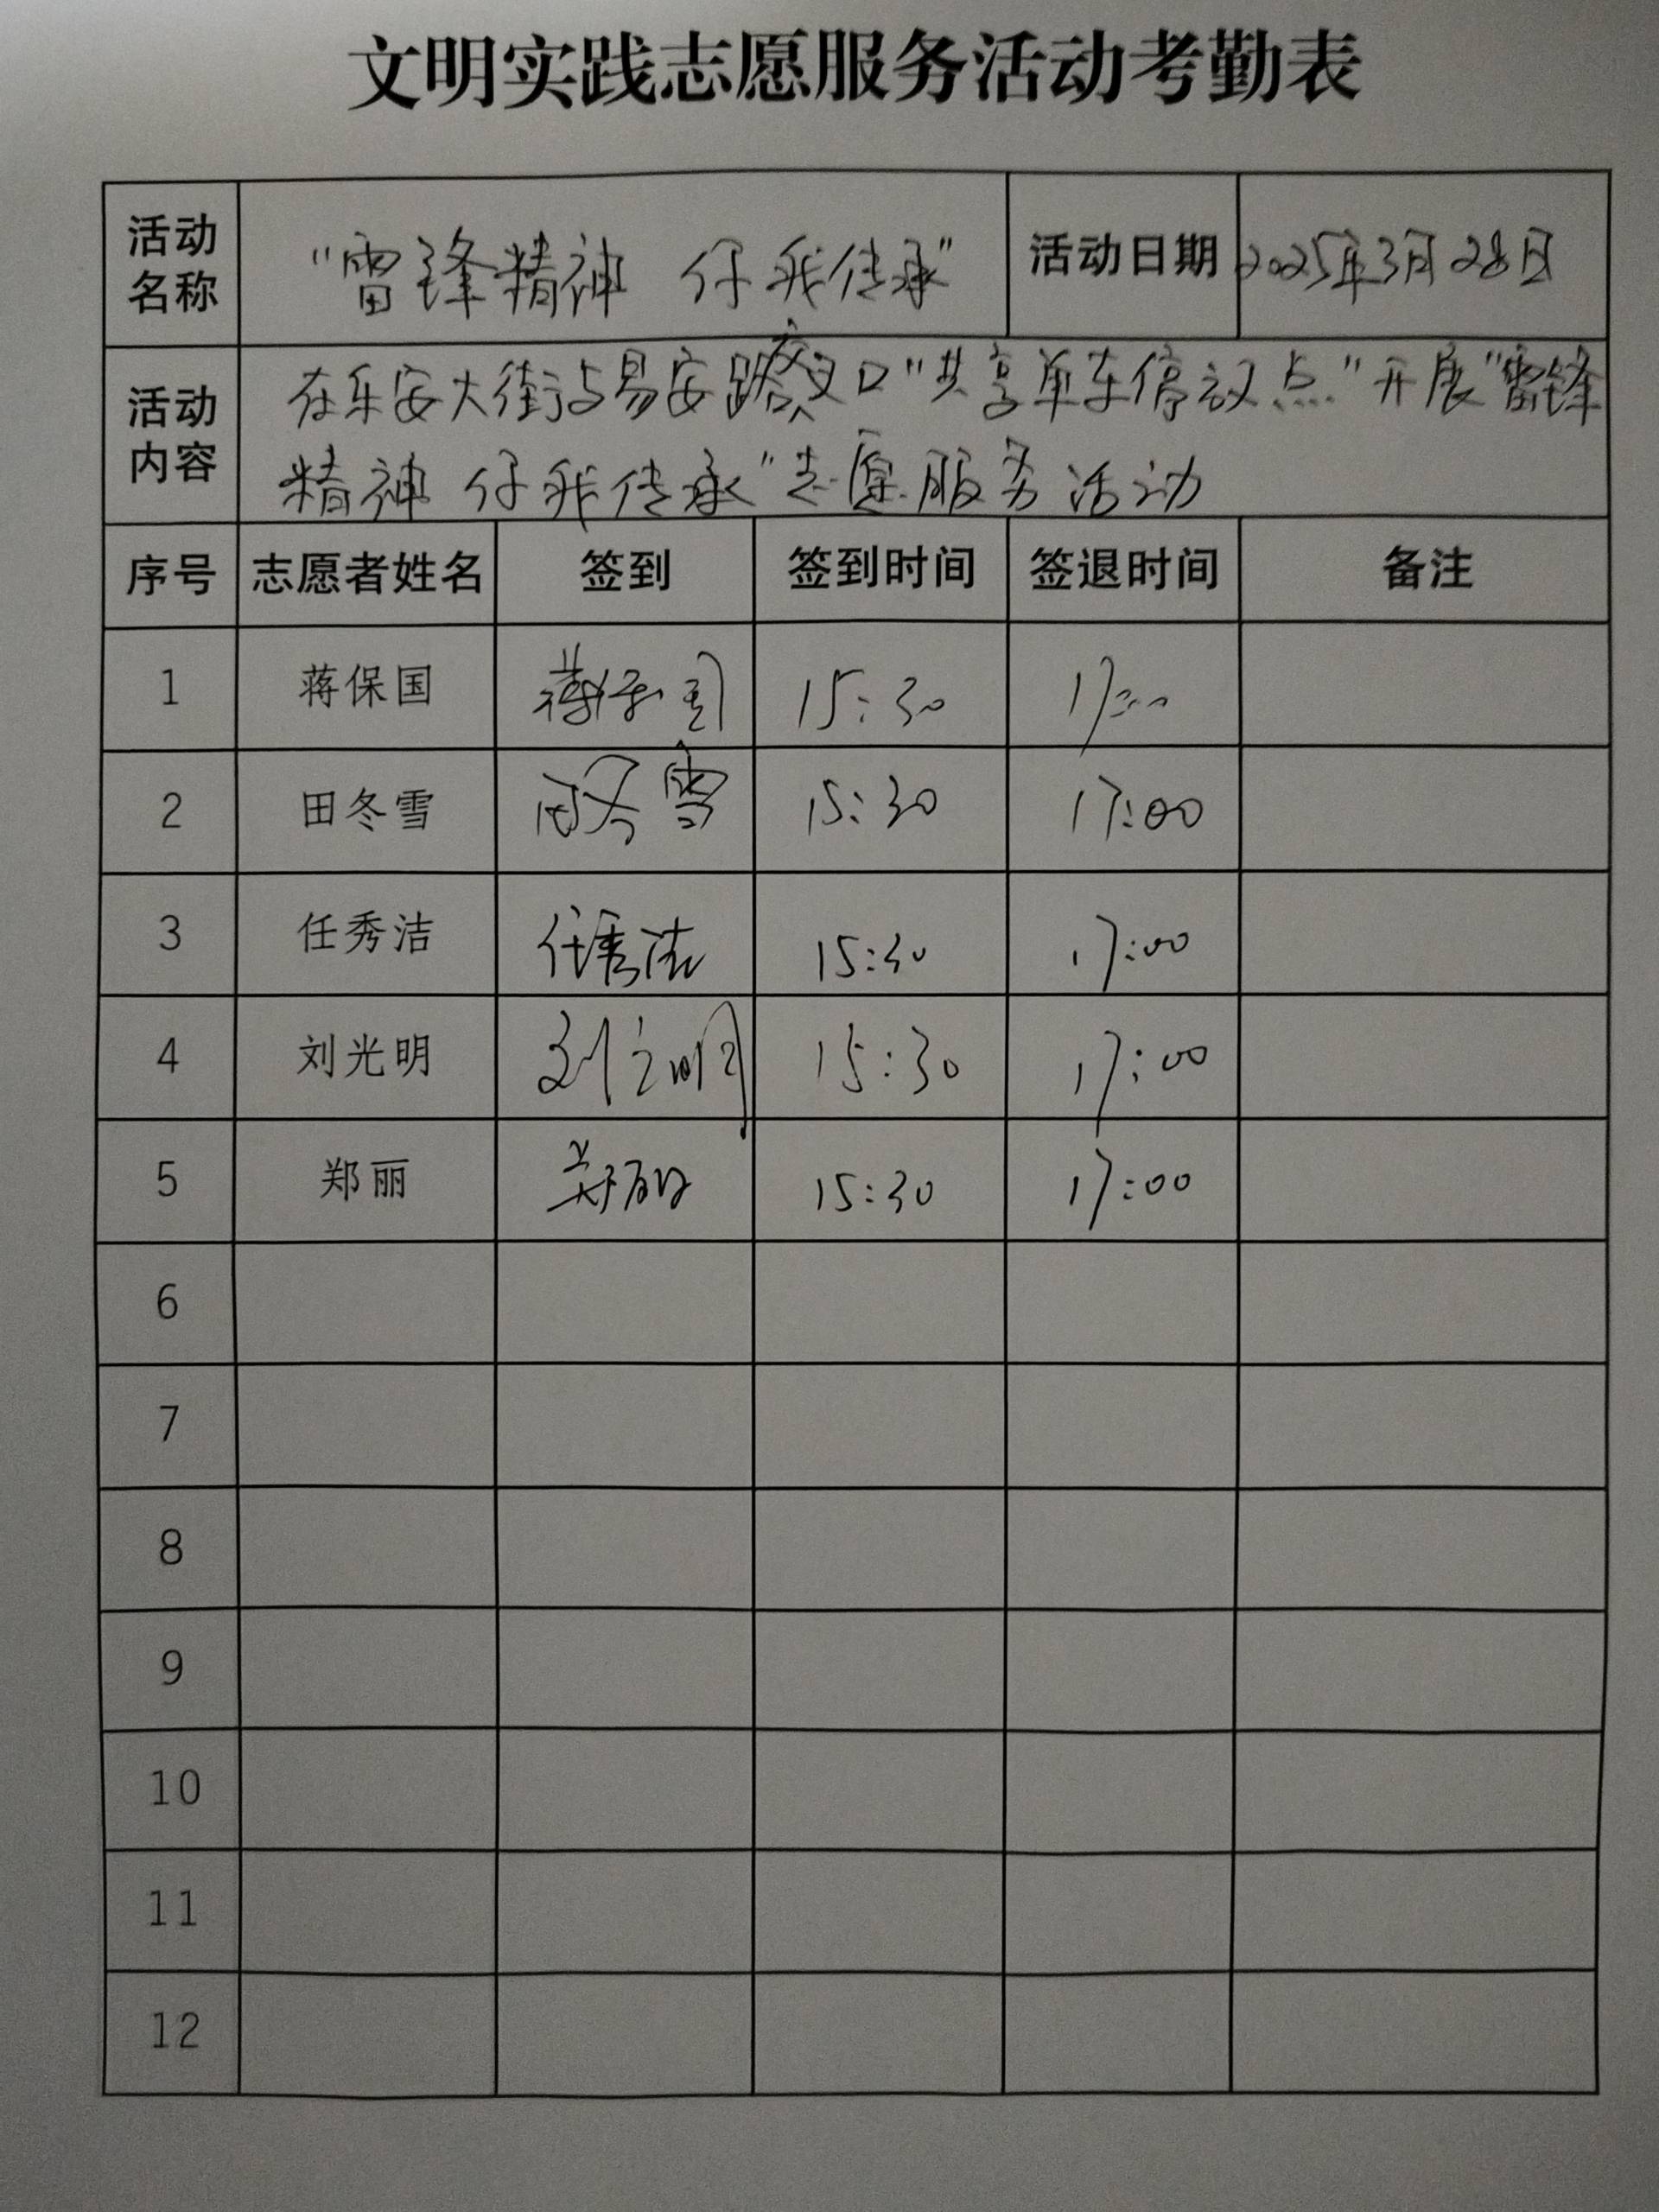 文明实践志愿服务活动考勤表
活动名称 "雷锋精神 你我传承" 活动日期 2025年3月28日
活动内容 在乐安大街与易安路交叉口"共享单车停放点"开展"雷锋
精神 你我传承"志愿服务活动
序号 志愿者姓名 签到 签到时间 签退时间 备注
1 蒋保国 蒋保国 15:30 17:00
2 田冬雪 田冬雪 15:30 17:00
3 任秀洁 任秀洁 15:30 17:00
4 刘光明 刘光明 15:30 17:00
5 郑丽 郑丽 15:30 17:00
6
7
8
9
10
11
12